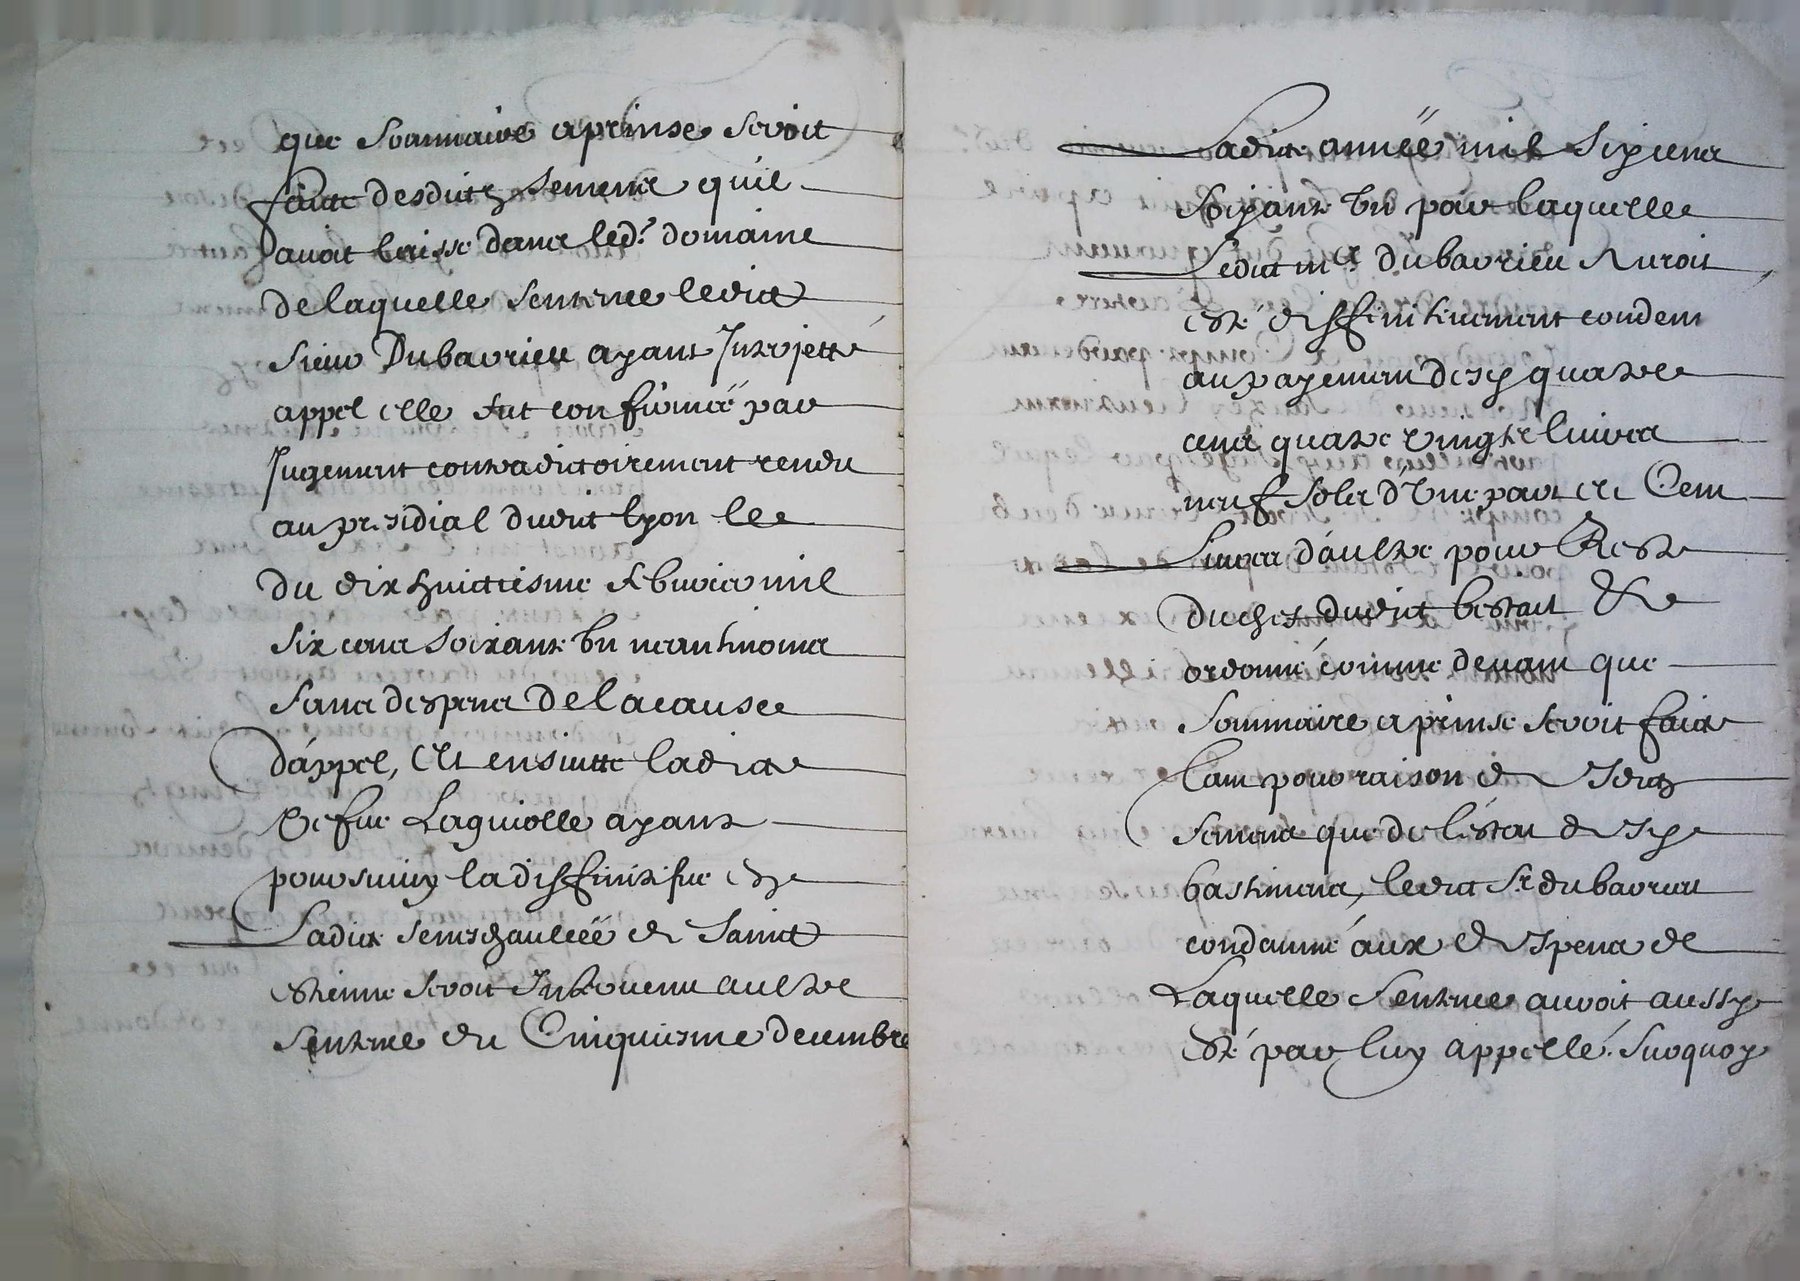 que sommaire aprinse seroit
faitte desditz semence quil
avoit laisse dans led.t domaine
de laquelle sentence ledict
sieur Dubavrieu ayant Interjetté
appel elle fut confirmée par
Jugement contradictoirement rendu
au presidial dudit lyon le
du dix huictiesme febvrier mil
six cens soixante un neanlmoins
sans despens de la cause
d'appel, Et ensuitte ladicte
Laguiolle ayant
poursuivy la diffinitifve
Ladicte seneschaulcéé de Sainct
estienne seroit Intervenu aultre
sentence du Cinquiesme decembre
Ladicte annéé mil six cens
soixante un par laquelle
Ledict mr dubavrieu auroit
esté diffinitivement condem
au payement de quatre
cens quatre vingtz livres
neuf solz d'une part et Cent
Livres d'aultre pour Reste
du chef dudit bestail &
ordonné comme devant que
sommaire aprinse seroit faicte
tant pour raison desditz
semence que de l'estat des
bastimens, ledict sr dubavrieu
condamné aux despens de
Laquelle sentence auroit aussy
esté par luy appellé. Surquoy